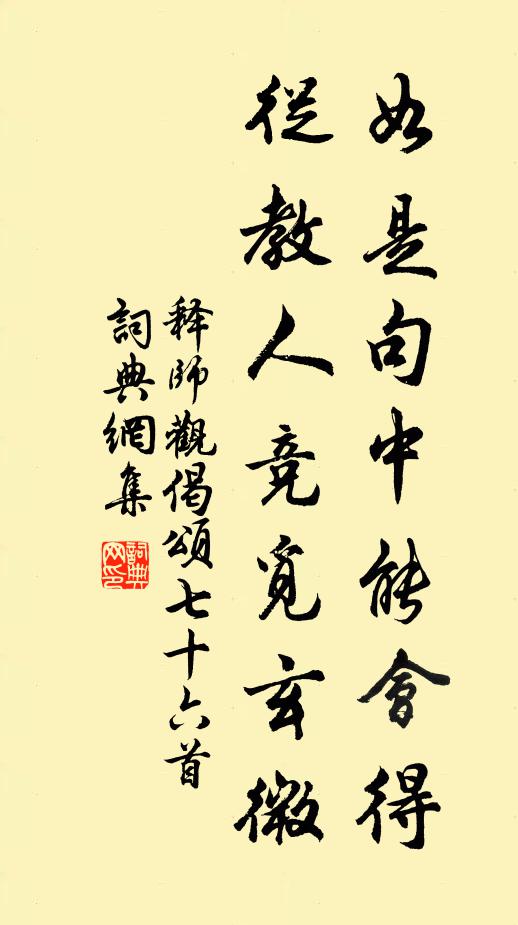 如是句中能會得
從教人竞覓玄微
释師觀偈頌七十六首
詞典網集
詞典网印